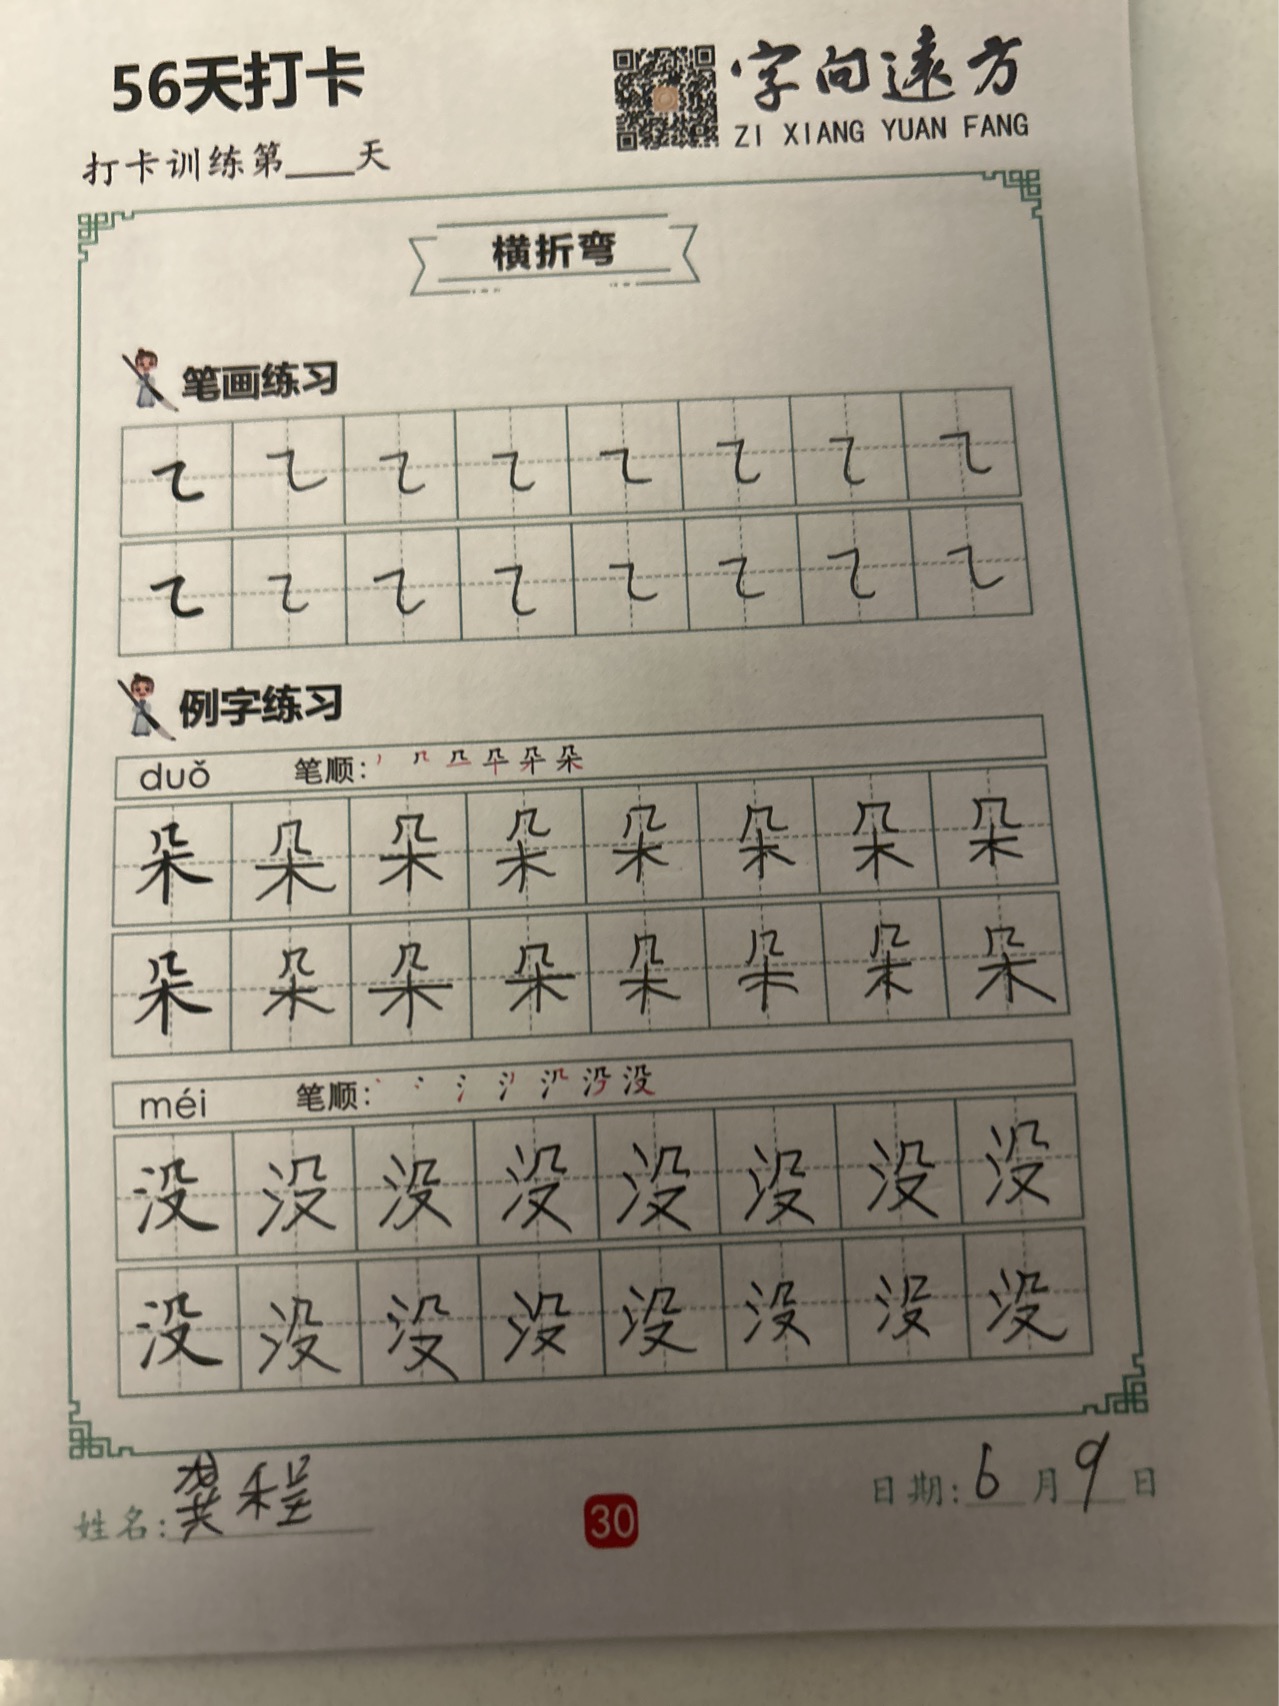 56天打卡
字向远方
ZI XIANG YUAN FANG
打卡训练第___天
横折弯
笔画练习
㇍ ㇍ ㇍ ㇍ ㇍ ㇍ ㇍ ㇍
㇍ ㇍ ㇍ ㇍ ㇍ ㇍ ㇍ ㇍
例字练习
duǒ 笔顺:
朵 朵 朵 朵 朵 朵 朵 朵
朵 朵 朵 朵 朵 朵 朵 朵
méi 笔顺:
没 没 没 没 没 没 没 没
没 没 没 没 没 没 没 没
姓名:龚程
30
日期:6月9日